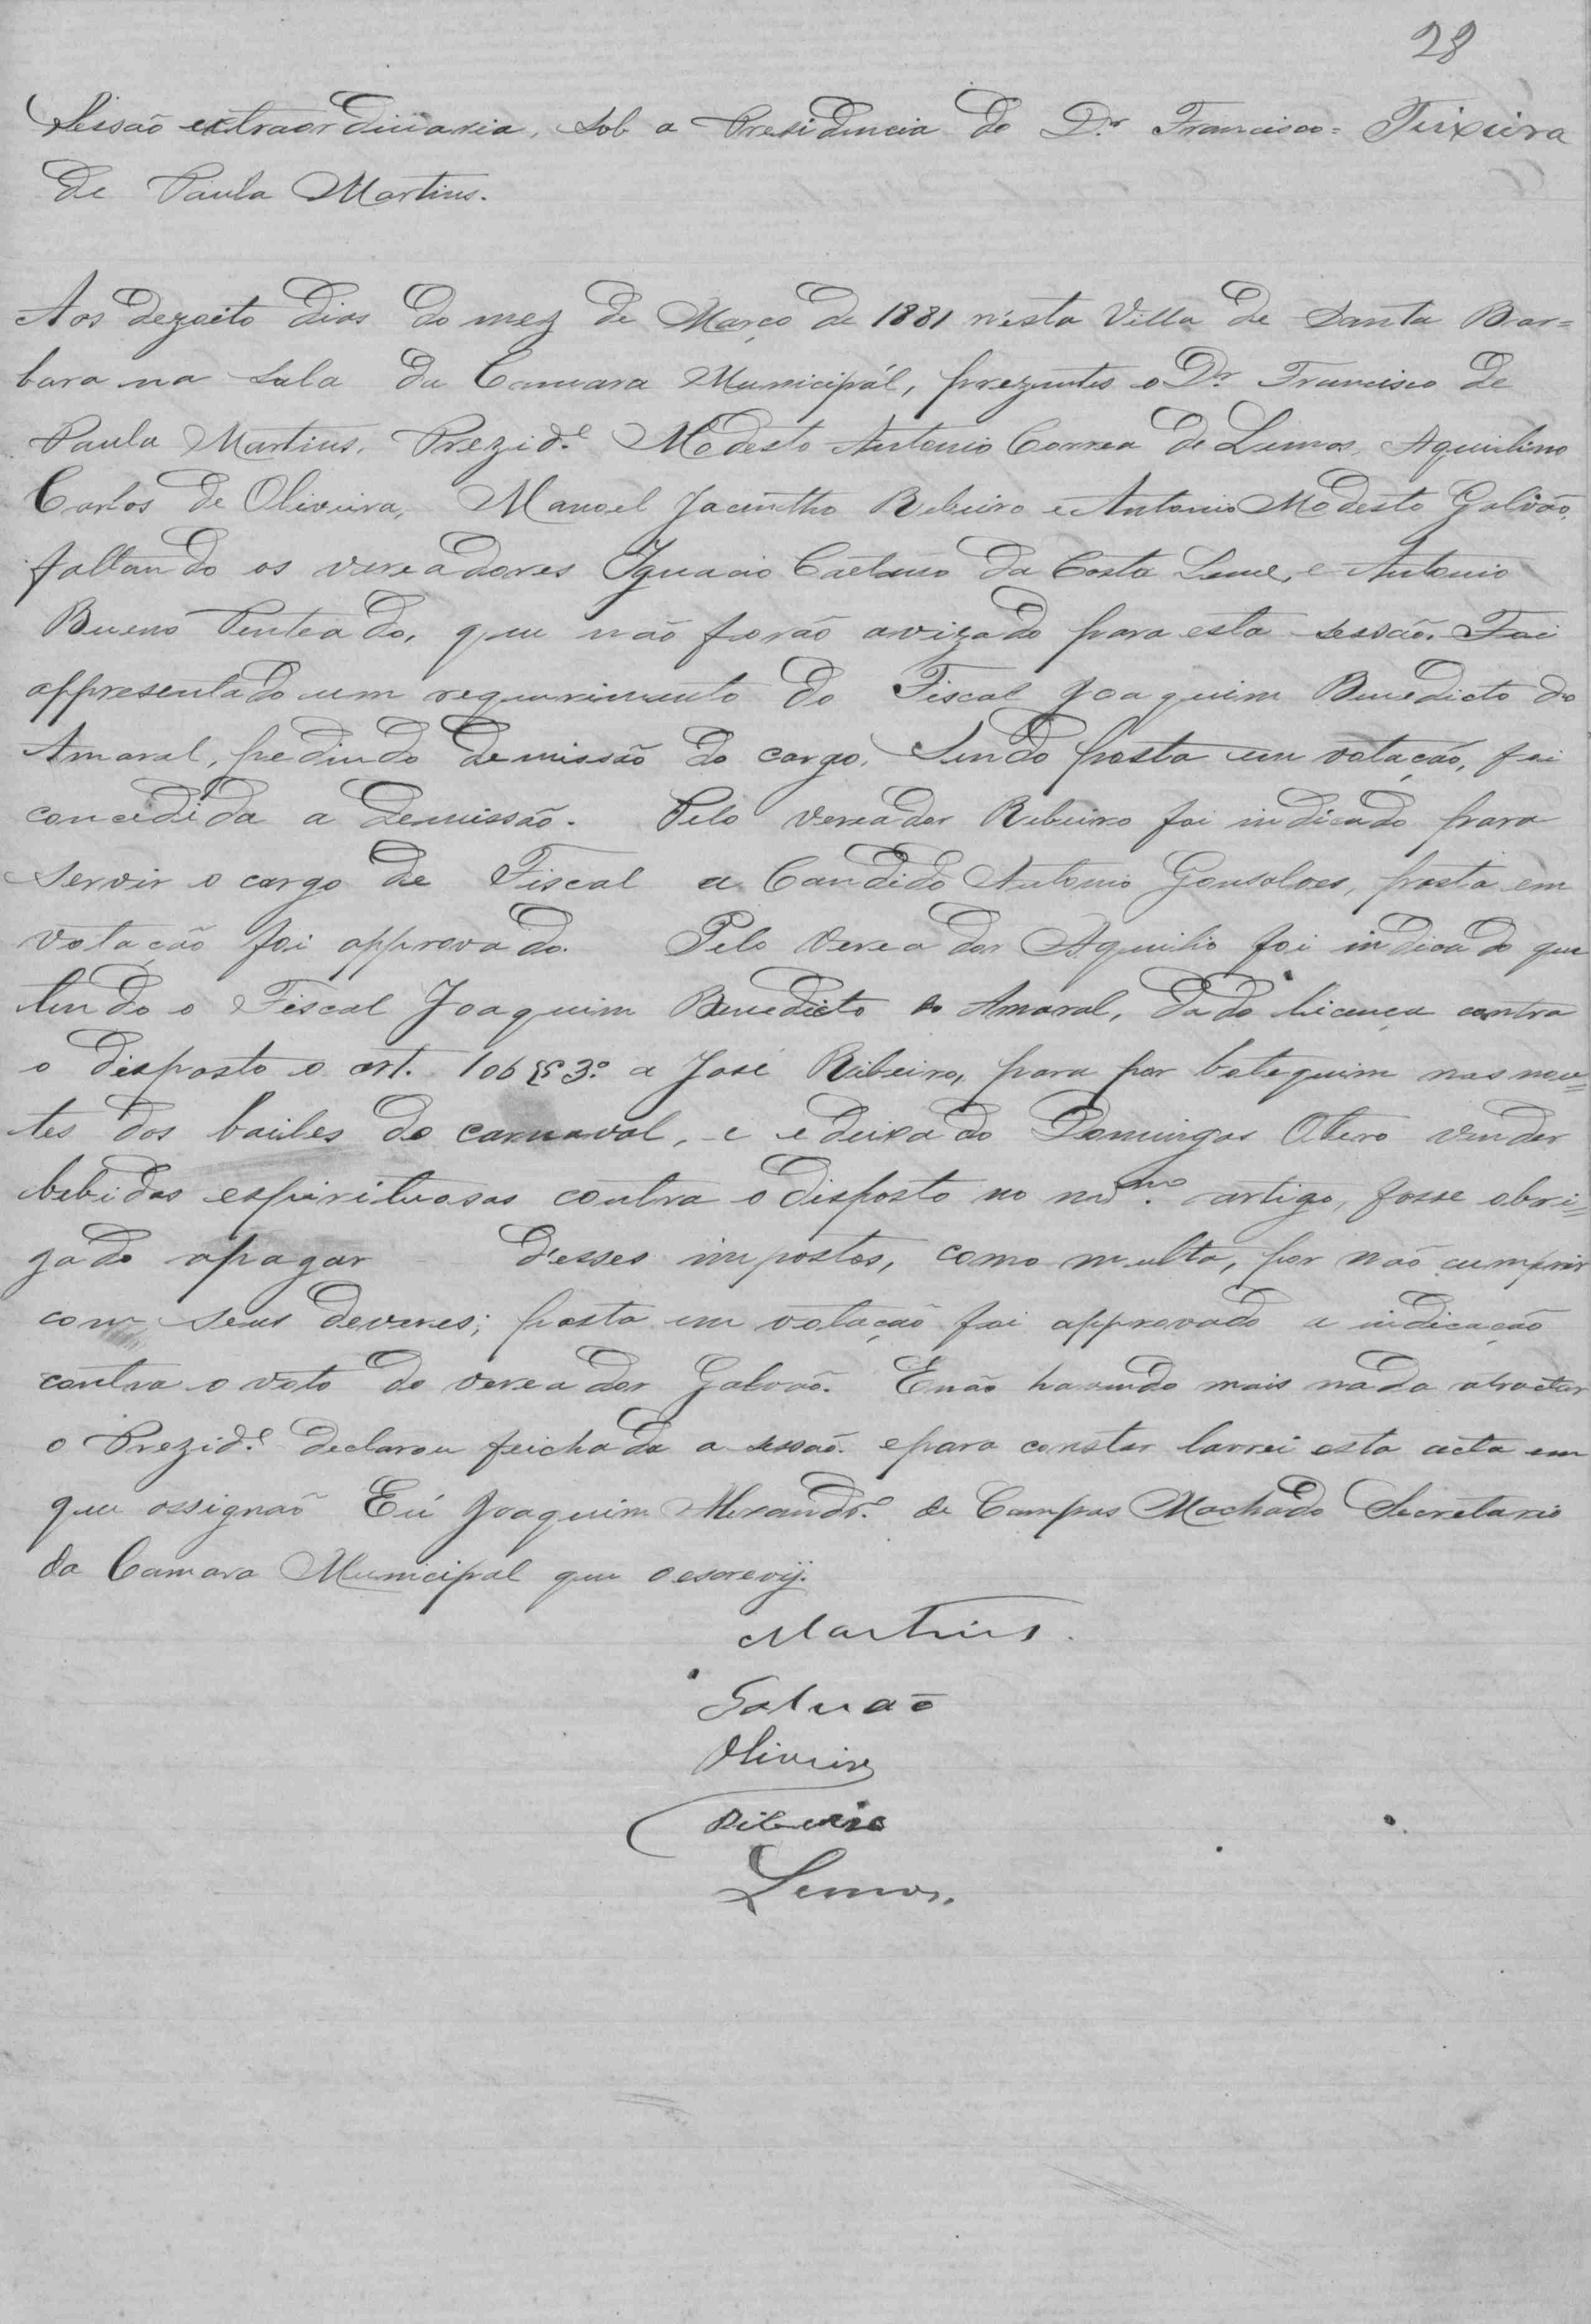 28
Sessão extraordinaria, sob a Presidencia do Dr. Francisco= Teixeira
de Paula Martins.
Aos dezoito dias do mez de Março de 1881 n'esta Villa de Santa Bar=
bara na sala da Camara Municipál, prezentes o Dr. Francisco de
Paula Martins, Prezid.e Modesto Antonio Correa de Lemos, Aquilino
Carlos de Oliveira, Manoel Jacintho Ribeiro e Antonio Modesto Galvão,
faltando os vereadores Ignacio Caetano da Costa Leme, e Antonio
Bueno Penteado, que não forão avizado para esta sessão. Foi
appresentado um requerimento do Fiscal Joaquim Benedicto do
Amaral, pedindo demissão do cargo. Sendo posta em votação, foi
concedida a demissão. Pelo vereador Ribeiro foi indicado para
servir o cargo de Fiscal a Candido Antonio Gonsalves, posta em
votação foi approvado. Pelo vereador Aquilio foi indicado que
tendo o Fiscal Joaquim Benedicto do Amaral, dado licença contra
o disposto o art. 106 § 3.º a José Ribeiro, para por botequim nas nou=
tes dos bailes do carnaval, e e deixado Domingos Otero vender
bebidas espirituosas contra o disposto no mmo. artigo, fosse obri=
gado apagar d'esses impostos, como multa, por não cumprir
com seus deveres; posta em votação foi approvado a indicação
contra o voto do vereador Galvão. Enão havendo mais nada atractar
o Prezid.e declarou feichada a sessão. epara constar lavrei esta acta em
que assignaõ Eú Joaquim Alexandr.e de Campos Machado Secretario
da Camara Municipal que o escrevij.
Martins.
Galvão
Oliveira
Ribeiro
Lemos.